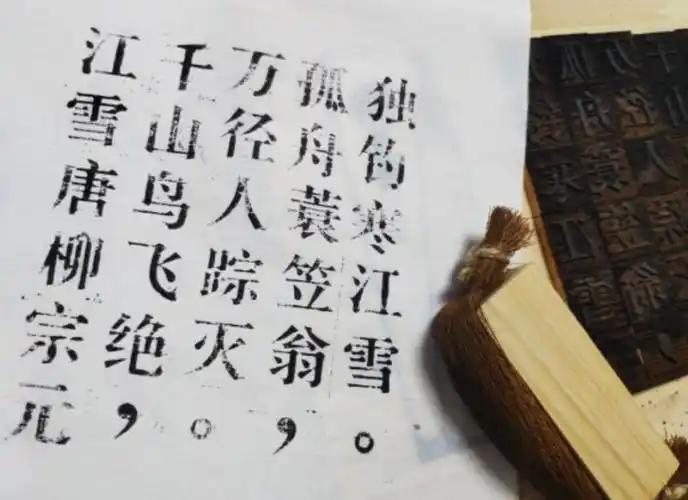 江雪唐柳宗元
千山鸟飞绝，
万径人踪灭。
孤舟蓑笠翁，
独钓寒江雪。